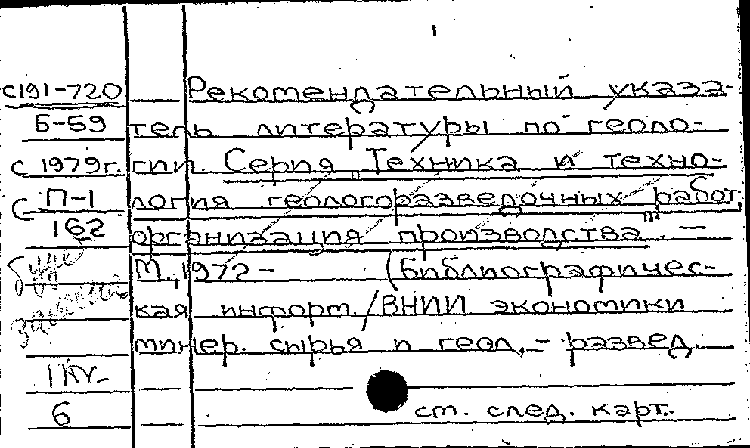 С191-720 Рекомендательный указа-
Б-59 тель литературы по геоло-
с 1979г. гии. Серия „Техника и техно-
с П-1 логия геологоразведочных работ,
162 организация производства" –
М., 1972 – (Библиографичес-
кая информ. / ВНИИ экономики
минер. сырья и геол. – развед.
6 ст. след. карт.